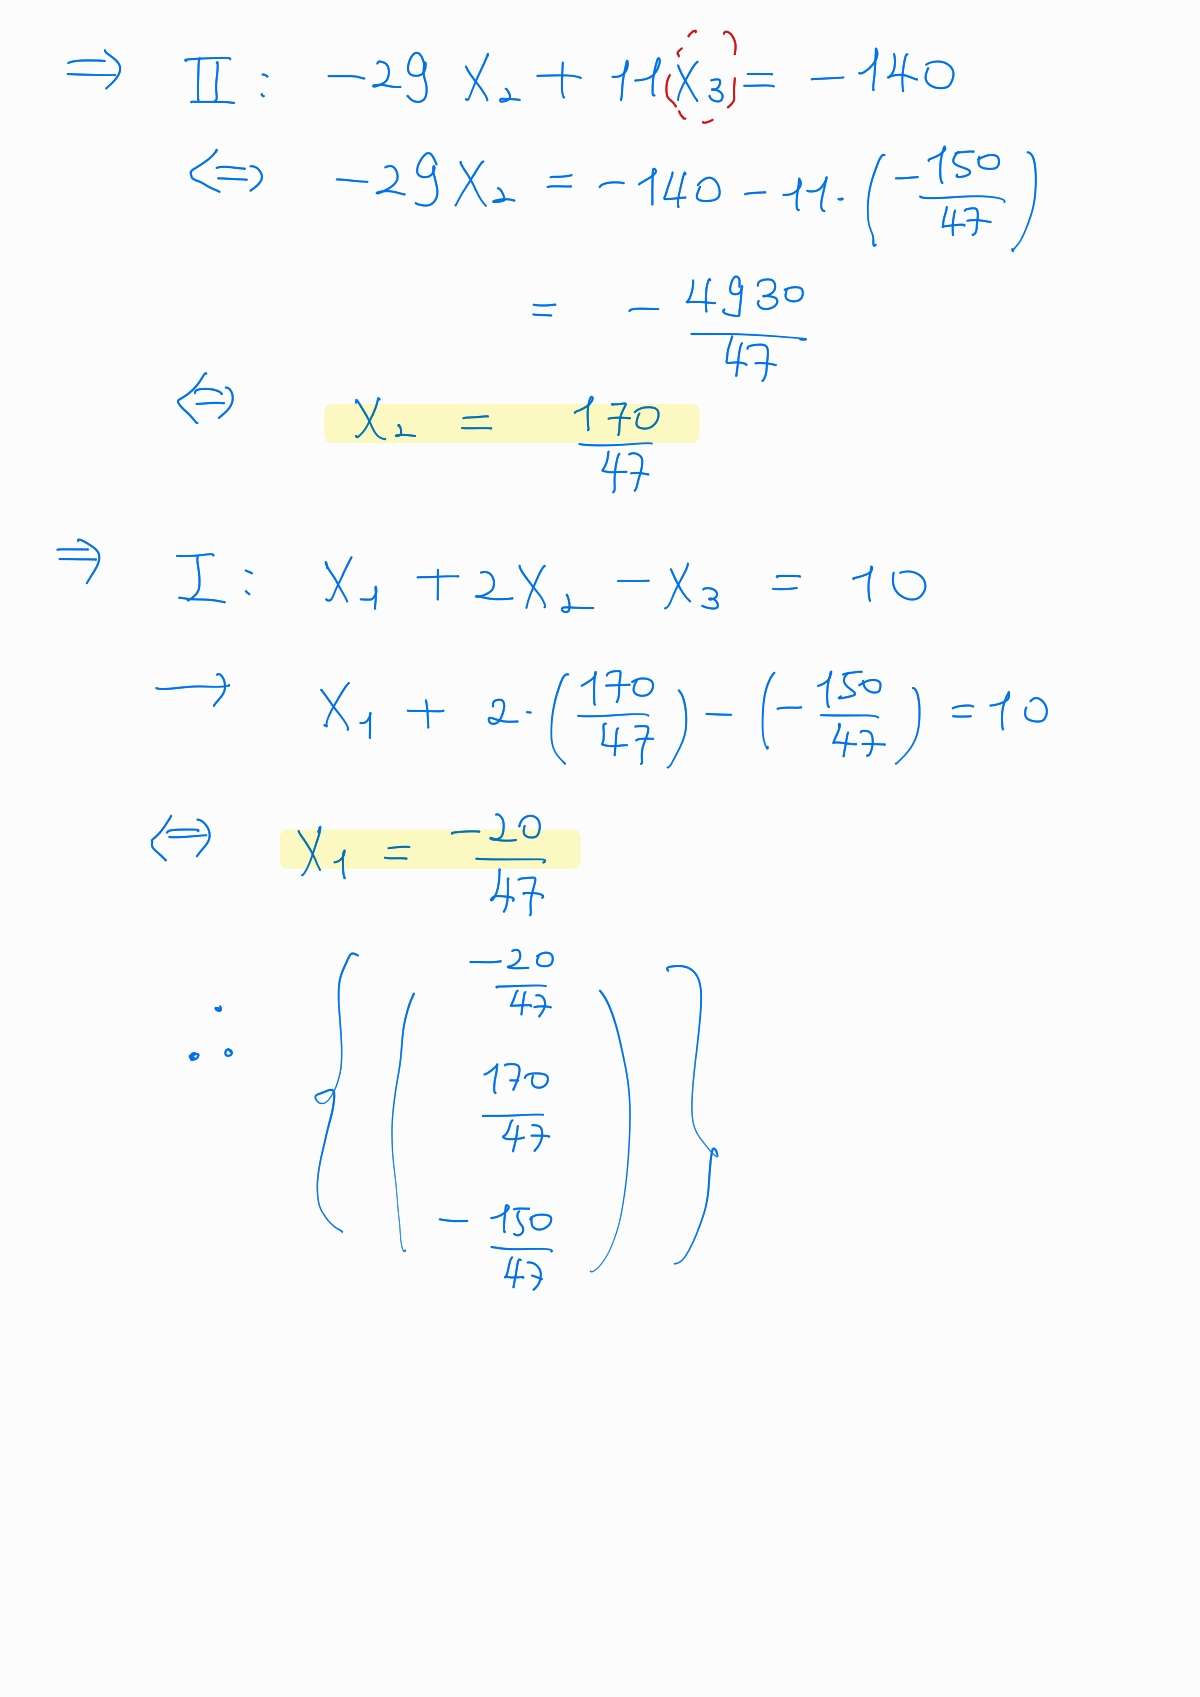 ⇒ II: -29 x₂ + 11 x₃ = -140
⇔ -29 x₂ = -140 - 11 · (-150/47)
= - 4930/47
⇔ x₂ = 170/47
⇒ I: x₁ + 2x₂ - x₃ = 10
→ x₁ + 2 · (170/47) - (-150/47) = 10
⇔ x₁ = -20/47
∴ { ( -20/47
170/47
- 150/47 ) }